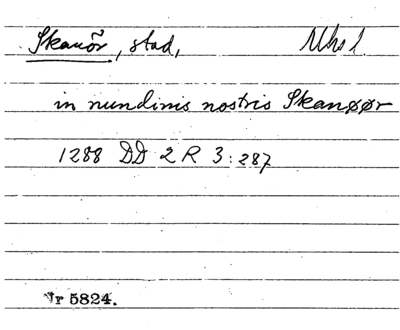 Skanör, stad, Mhs l.
in nundinis nostris Skanøør
1288 DD 2 R 3:287
Nr 5824.